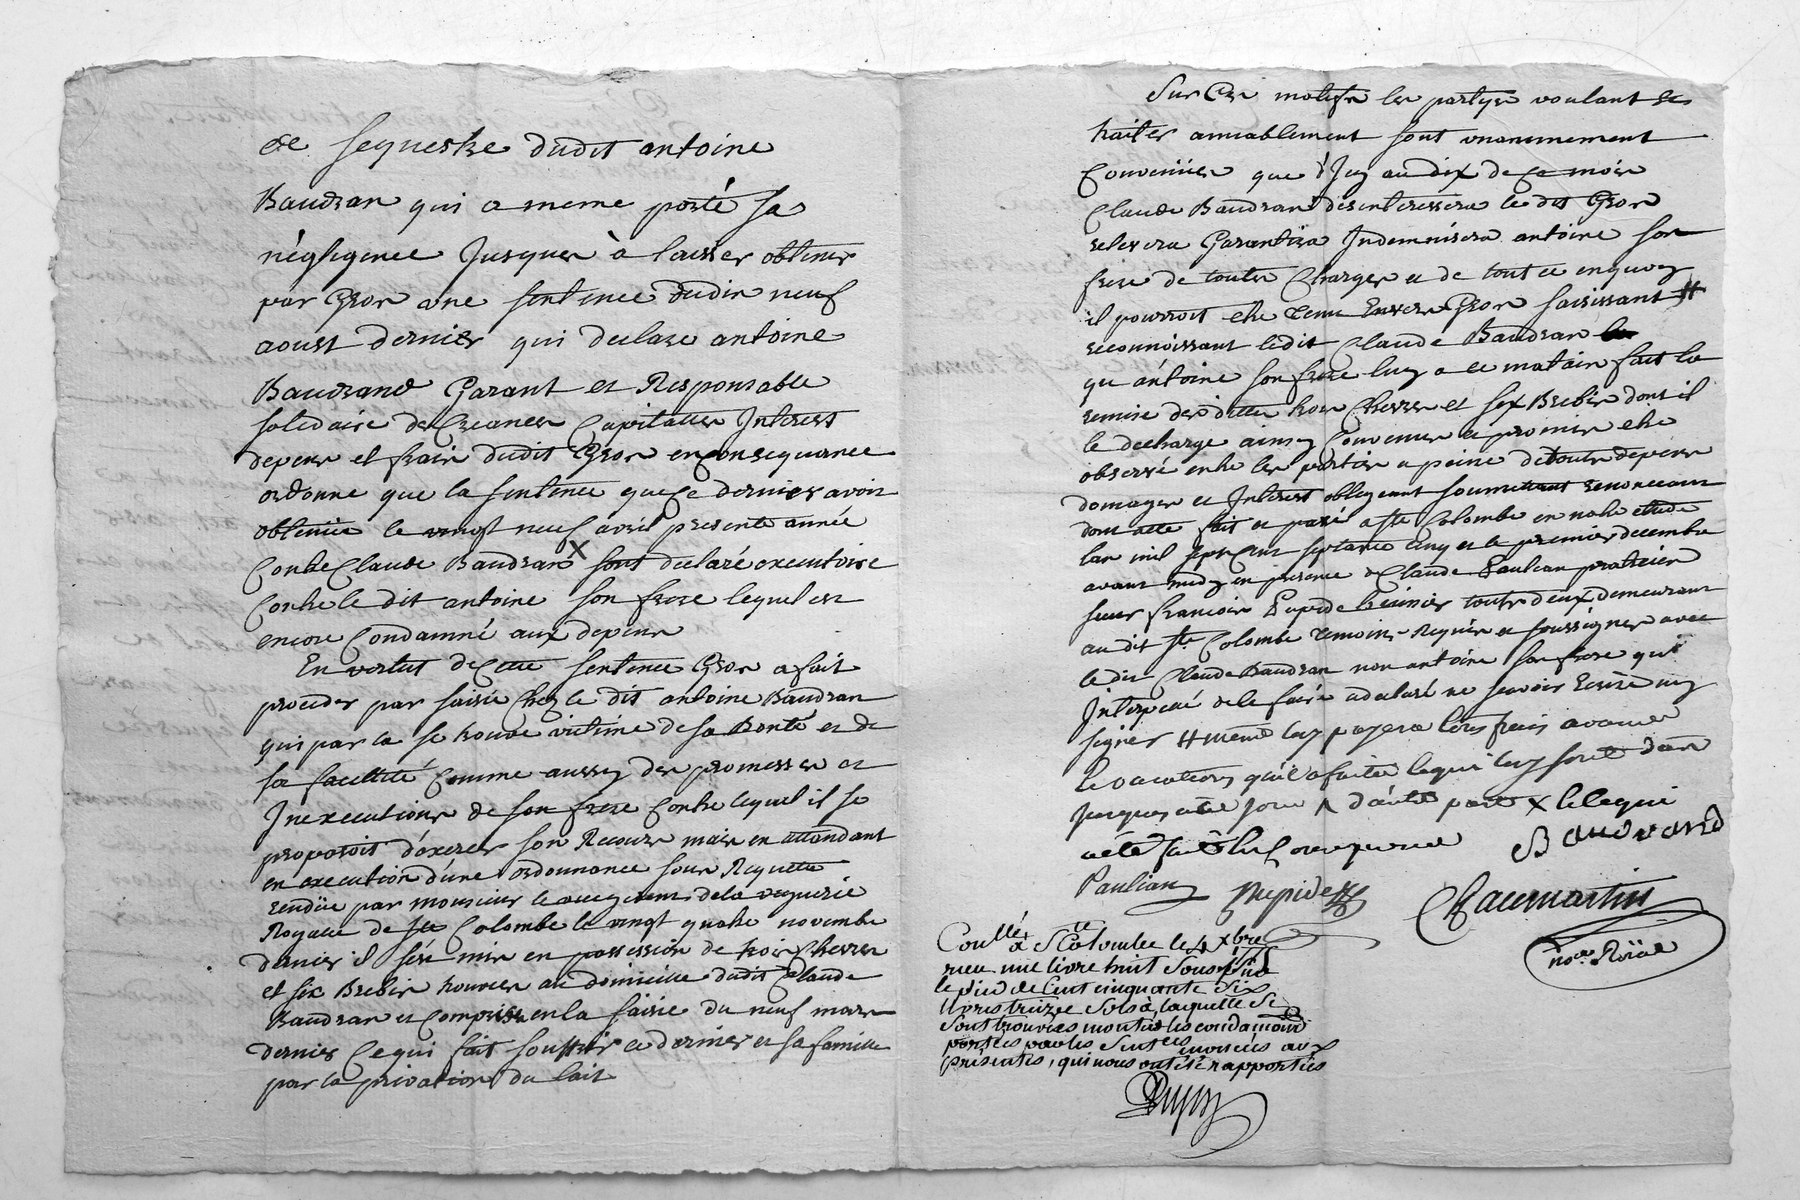 de sequestre dudit antoine
Baudran qui a meme porté sa
négligence Jusques à laisser obtenir
par Gron une sentence dudix neuf
aoust dernier qui declare antoine
Baudrand Garant et Responsable
solidaire des Creances Capitaux Interest
depens et frais dudit Gron en consequance
ordonne que la sentence que ce dernier avoit
obtenüe le vingt neuf avril presente année
Contre Claude Baudran X sont declaré executoire
Contre le dit antoine son frere lequel est
encore Condamné aux depens
En vertut de Cette sentence Gron a fait
proceder par saisie Chez le dit antoine Baudran
qui par la se trouve victime de sa Bonté et de
sa facilité Comme aussy des promesses et
Inexecutions de son frere Contre lequel il se
proposoit d'éxercer son Recours mais en attendant
en execution d'une ordonnance sour Requette
rendüe par monsieur le de la viguerie
Royalle de Ste Colombe le vingt quatre novembre
dernier il s'est mis en possession de trois Chevres
et six Brebis trouvées au domicille dudit Claude
Baudran et Comprises en la saisie du neuf mars
dernier Ce qui fait souffrir ce dernier et sa famille
par la privation du lait
Sur Ces motifs les partyes voulant se
traiter amiablement sont unanimement
Convenües que d'Icy au dix de Ce mois
Claude Baudran desinteressera le dit Gron
relevera Garantira Indemnisera antoine son
frere de toutes Charges et de tout ce en quoy
il pourroit etre tenu Envers Gron saisissant #
reconnoissant ledit Claude Baudran
qu'antoine son frere luy a ce matain fait la
remise des dittes trois Chevres et six Brebis dont il
le decharge ainsy Convenu et promis etre
observé entre les parties a peine de touts depens
domages et Interest obligeant soumettant renonceant
dont acte fait et passé a Ste Colombe en notre etude
lan mil sept Cent septante Cinq et le premier decembre
avant midy en presence de Claude Paulian praticien
sieur francois Dupide tous deux demeurant
au dit Ste Colombe temoins Requis et soussignés avec
le dit Claude Baudran non antoine son frere qui
Interpelé de le faire a declaré ne scavoir Ecrire ny
signer # meme luy payera les frais avances
et vacations qu'il a faites lequi luy sont dues
jusques a ce jour d'autre part X le lequi
a été fait
Baudrand
Paulian Dupide
Chacemartin
nore Roïal
Conllé à Ste Colombe le 4 xbre 1775
reçu une livre huit sous
le pied de Cent cinquante six
livres treize sols à laquelle se
sont trouvées montér les condamnons
portées par les Sentces énoncées aux
présentes, qui nous ont été rapportées